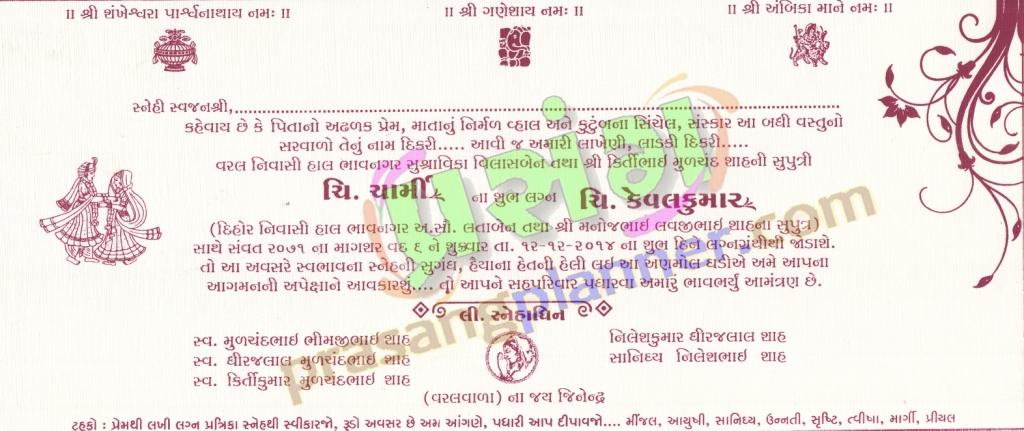 ॥ શ્રી શંખેશ્વરા પાર્શ્વનાથાય નમઃ ॥ ॥ શ્રી ગણેશાય નમઃ ॥ ॥ શ્રી અંબિકા માને નમઃ ॥
સ્નેહી સ્વજનશ્રી,
કહેવાય છે કે પિતાનો અઢળક પ્રેમ, માતાનું નિર્મળ વ્હાલ અને કુટુંબના સિંચેલ, સંસ્કાર આ બધી વસ્તુનો
સરવાળો તેનું નામ દિકરી..... આવી જ અમારી લાખેણી, લાડકી દિકરી.....
વરલ નિવાસી હાલ ભાવનગર સુશ્રાવિકા વિલાસબેન તથા શ્રી કિર્તિભાઈ મુળચંદ શાહની સુપુત્રી
ચિ. ચાર્મી ના શુભ લગ્ન ચિ. કેવલકુમાર
(દિહોર નિવાસી હાલ ભાવનગર અ.સૌ. લતાબેન તથા શ્રી મનોજભાઈ લવજીભાઈ શાહના સુપુત્ર)
સાથે સંવત ૨૦૭૧ ના માગશર વદ ૬ ને શુક્રવાર તા. ૧૨-૧૨-૨૦૧૪ ના શુભ દિને લગ્નગ્રંથીથી જોડાશે.
તો આ અવસરે સ્વભાવના સ્નેહની સુગંધ, હૈયાના હેતની હેલી લઈ આ અણમોલ ઘડીએ અમે આપના
આગમનની અપેક્ષાને આવકારશું.... તો આપને સહપરિવાર પધારવા અમારું ભાવભર્યું આમંત્રણ છે.
પ્રસંગ
prasangplanner.com
લી. સ્નેહાધિન
સ્વ. મુળચંદભાઈ ભીમજીભાઈ શાહ નિલેશકુમાર ધીરજલાલ શાહ
સ્વ. ધીરજલાલ મુળચંદભાઈ શાહ સાનિધ્ય નિલેશભાઈ શાહ
સ્વ. કિર્તિકુમાર મુળચંદભાઈ શાહ
(વરલવાળા) ના જય જિનેન્દ્ર
ટહુકો : પ્રેમથી લખી લગ્ન પ્રત્રિકા સ્નેહથી સ્વીકારજો, રૂડો અવસર છે અમ આંગણે, પધારી આપ દીપાવજો.... મીંજલ, આયુષી, સાનિધ્ય, ઉન્નતી, સૃષ્ટિ, ત્વીષા, માર્ગી, પ્રીયલ